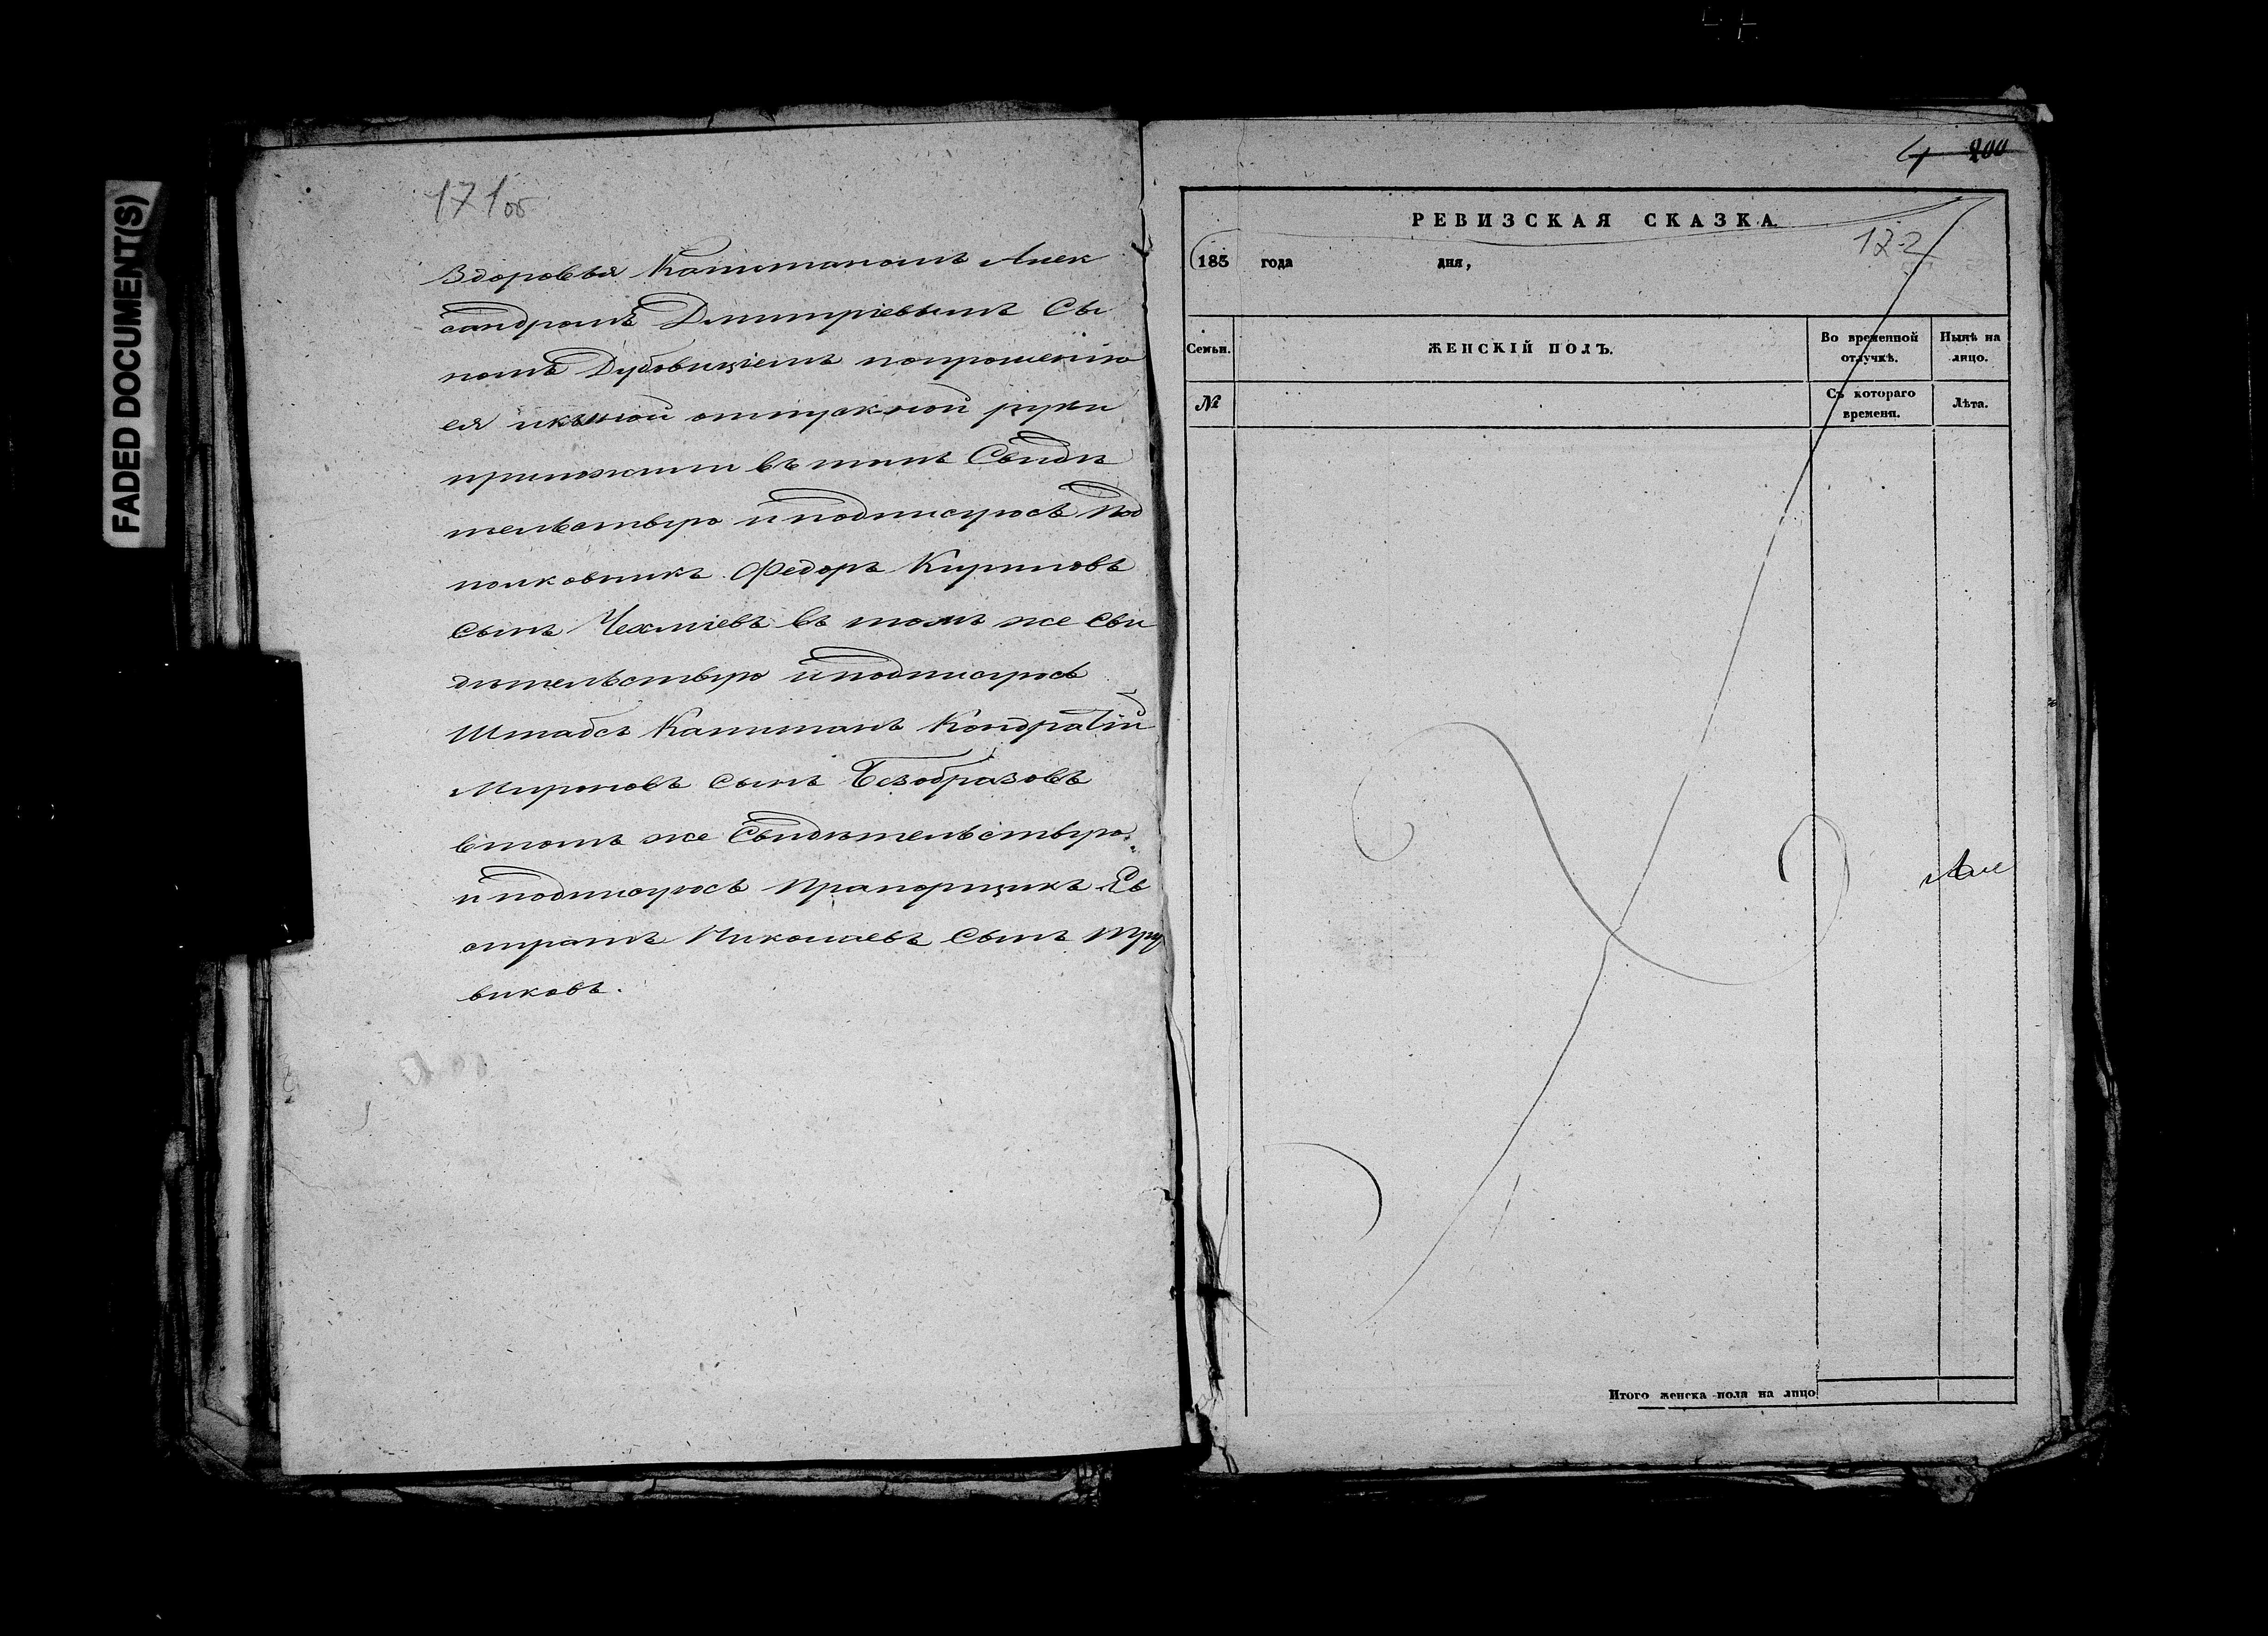 FADED DOCUMENT(S)
171об
Здоровья Капитаномъ Алек
сандромъ Дмитріевымъ Сы
номъ Дубовицкимъ попрошенію
ея икъ сей отпускной руки
приложили въ томъ Свидѣ
тельствую иподписуюсь Под
полковникъ Федоръ Кириловъ
Сынъ въ томъ же Сви
дѣтельствую иподписуюсь
Штабсъ Капитанъ Кондратій
Мироновъ Сынъ Безобразовъ
втомъ же Свидѣтельствую
иподписуюсь Прапорщикъ Ев
стратъ Николаевъ Сынъ Тру
виковъ.
400
РЕВИЗСКАЯ СКАЗКА.
172
185 года дня,
Семьи. ЖЕНСКІЙ ПОЛЪ. Во временной отлучкѣ. Нынѣ на лицо.
№ Съ котораго времени. Лѣта.
Итого женска пола на лицо